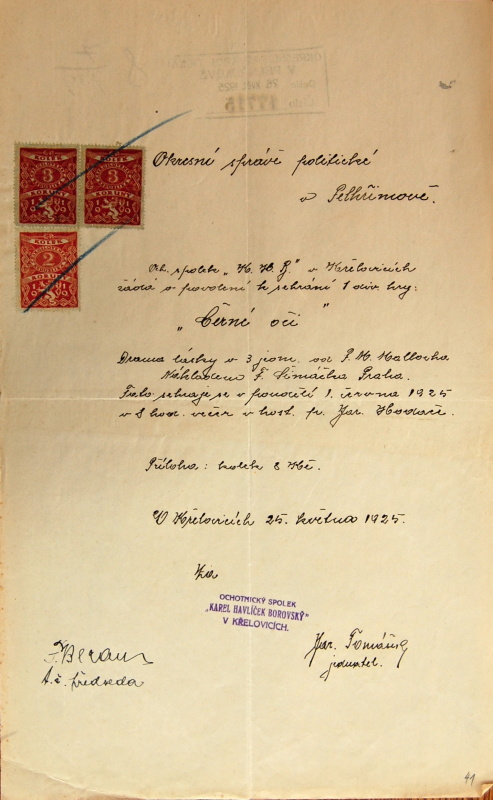 KOLEK
3
KORUNY
1919
KOLEK
3
KORUNY
1919
KOLEK
2
KORUNY
1919
17715
Okresní správě politické
v Pelhřimově.
Och. spolek „K. H. B." v Křelovicích
žádá o povolení k sehrání 1 div. hry:
„Černé oči"
Drama lásky v 3 jedn. od F. M.
Nákladem F. Šimáčka Praha.
sehraje se v pondělí 1. června 1925
v 8 hod. večer v host. p. Jar. Hodače.
Příloha: kolek 8 Kč.
V Křelovicích 25. května 1925.
Za
OCHOTNICKÝ SPOLEK
„KAREL HAVLÍČEK BOROVSKÝ"
V KŘELOVICÍCH.
F. Beran
t. č. předseda
Jar. Tomášek
jednatel.
41